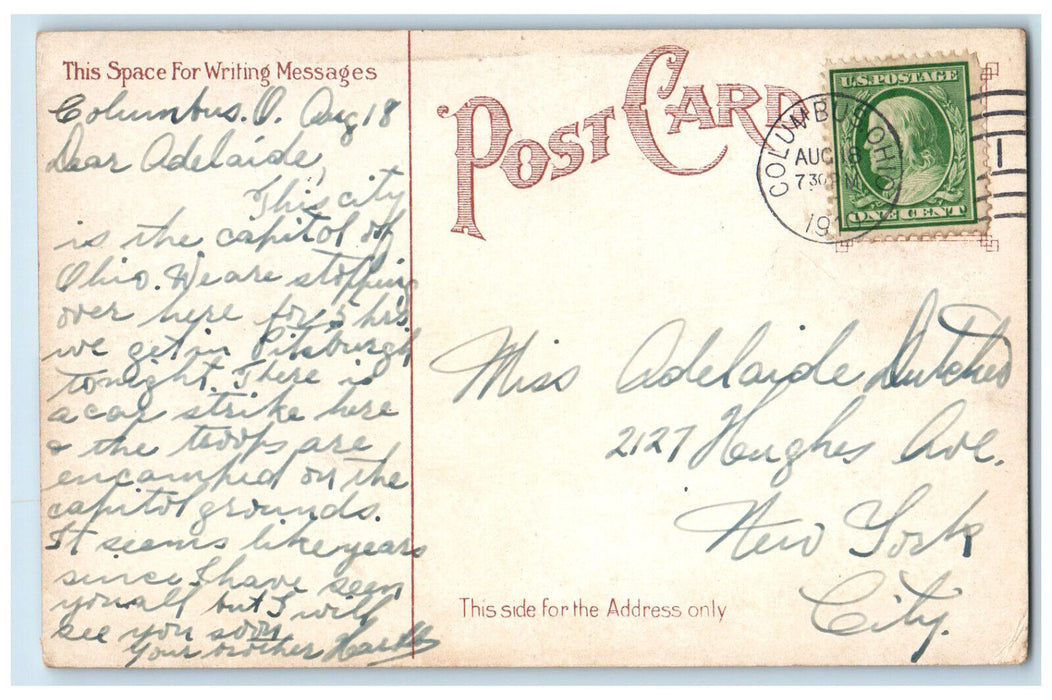 This Space For Writing Messages
Columbus. O. Aug 18
Dear Adelaide,
This city
is the capitol of
Ohio. We are stopping
over here for 5 hrs.
we get in Pittsburgh
tonight. There is
a car strike here
& the troops are
encamped on the
capitol grounds.
It seems like years
since I have seen
you all but I will
see you soon
Your brother
POST CARD
U.S. POSTAGE
ONE CENT
COLUMBUS OHIO
AUG 18
7 30 PM
19
Miss Adelaide
2127 Hughes Ave.
New York
City.
This side for the Address only